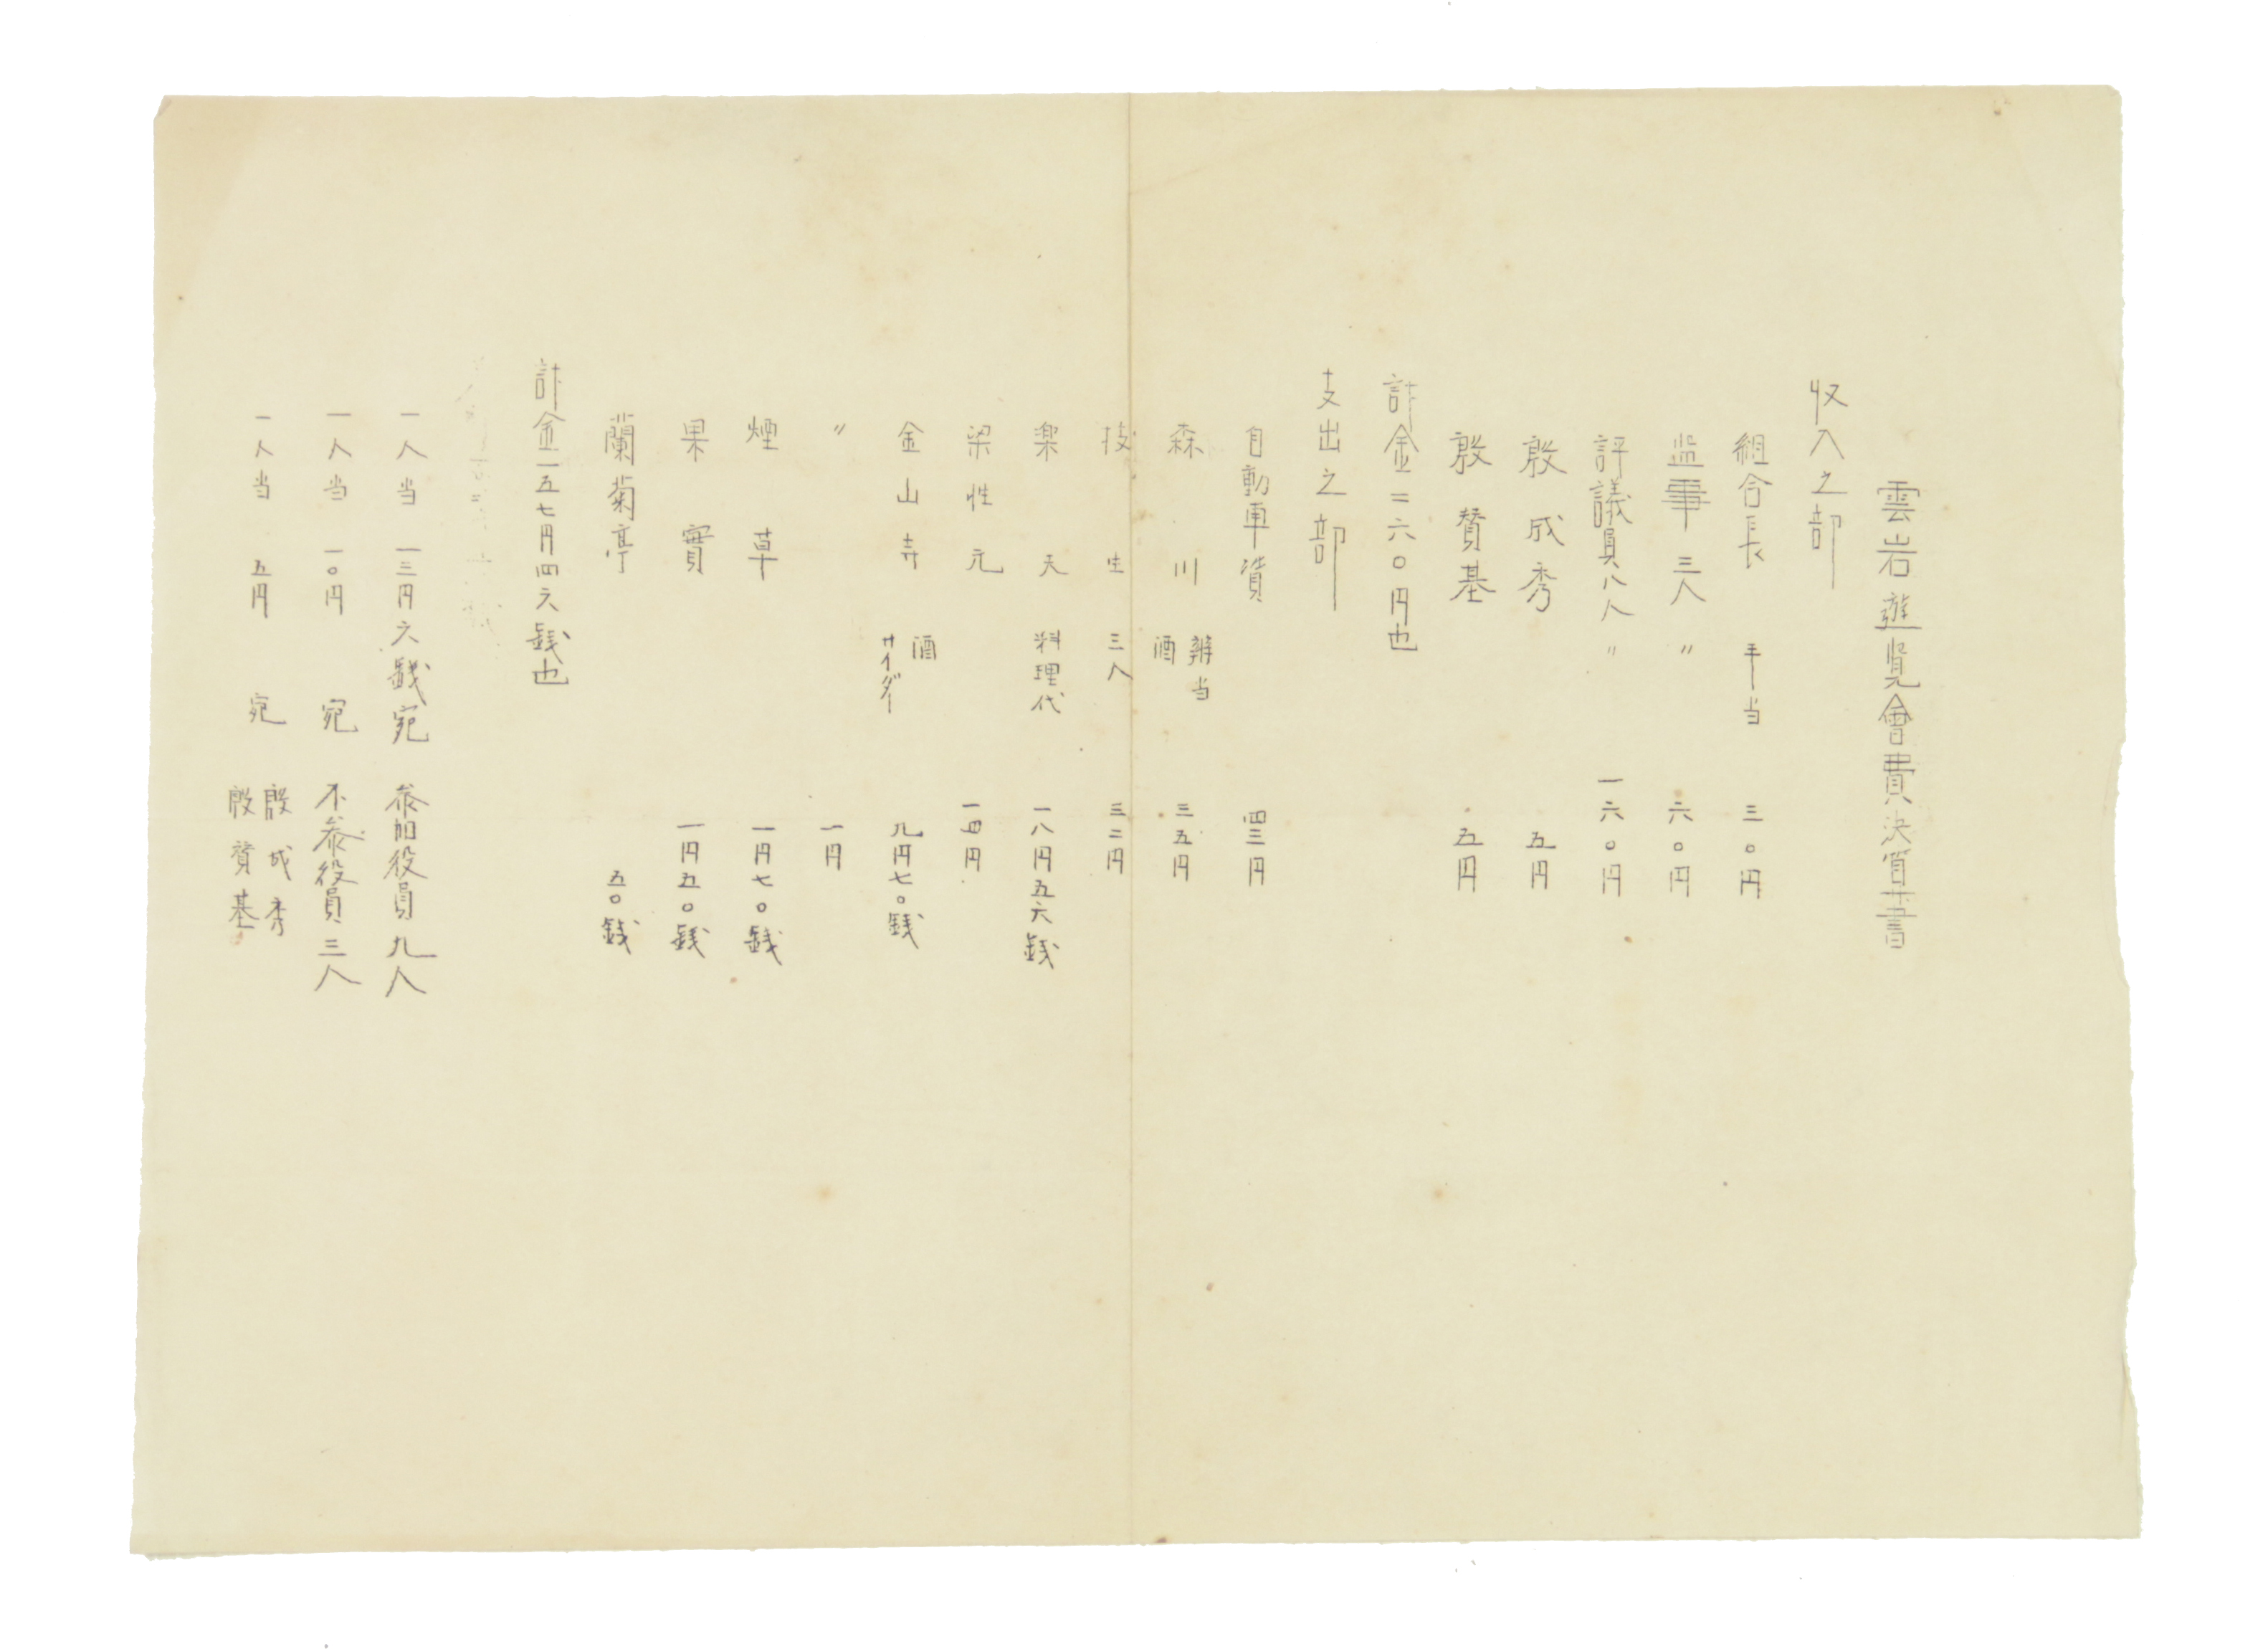 雲岩遊覧會費決算書
収入之部
組合長 手当 三〇円
监事三人 〃 六〇円
評議員八人 〃 一六〇円
殷成秀 五円
殷賛基 五円
計金二六〇円也
支出之部
自動車賃 四三円
森川 辨当 酒 三五円
技生 三人 三二円
楽天 料理代 一八円五六銭
梁性元 一四円
金山寺 酒 サイダー 九円七〇銭
〃 一円
煙草 一円七〇銭
果實 一円五〇銭
蘭菊亭 五〇銭
計金一五七円四六銭也
一人当 一三円六銭宛 参加役員九人
一人当 一〇円 宛 不参役員三人
一人当 五円 宛 殷成秀 殷賛基